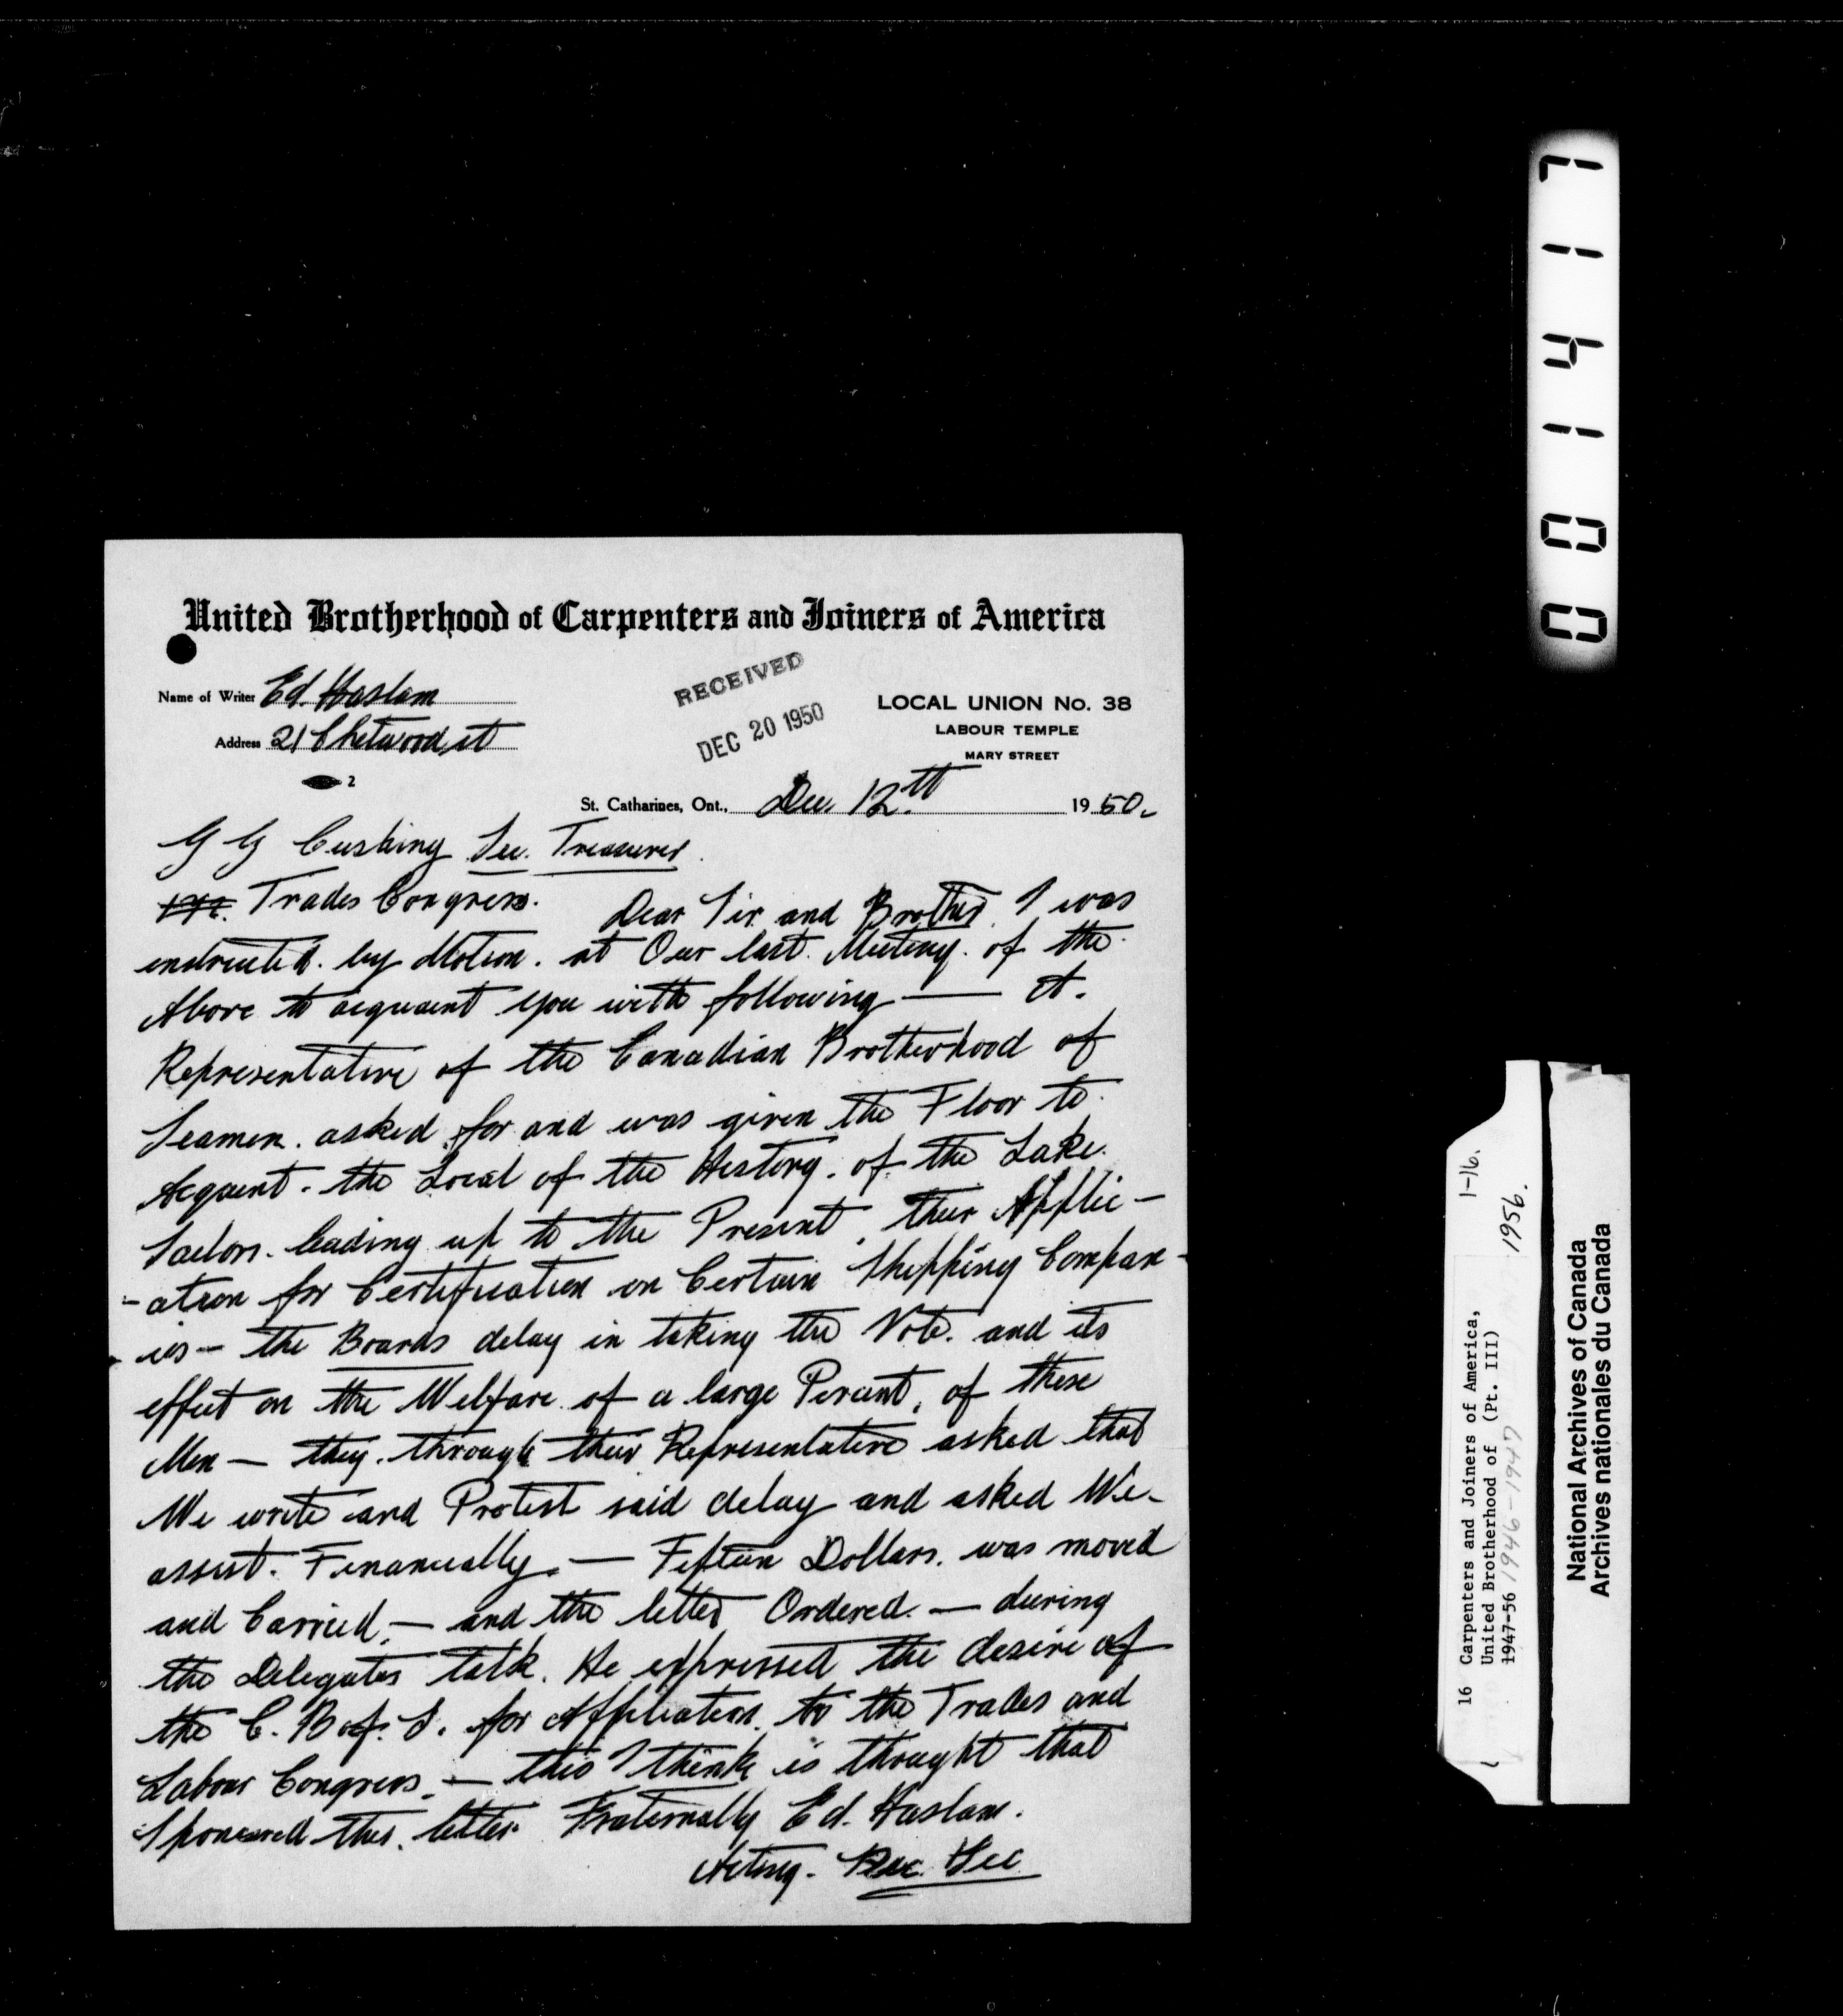 United Brotherhood of Carpenters and Joiners of America
Name of Writer Ed. Haslam
Address 21 Chetwood st
RECEIVED
DEC 20 1950
LOCAL UNION No. 38
LABOUR TEMPLE
MARY STREET
2
St. Catharines, Ont., Dec. 12.th 1950.
G G Cushing Sec. Treasurer.
Trades Congress. Dear Sir and Brother I was
instructed. by Motion. at Our last Meeting. of the
Above to acquaint you with following — A.
Representative of the Canadian Brotherhood of
Seamen. asked for and was given the Floor to
Acquaint. the Local of the History. of the Lake.
Sailors. leading up to the Present, their Applic-
-ation for Certification on Certain Shipping Compan-
ies — the Boards delay in taking the Vote. and its
effect on the Welfare of a large Percent, of these
Men — they. through their Representative asked that
We write and Protest said delay and asked We-
assist. Financially. — Fifteen Dollars. was moved
and Carried. — and the letter Ordered. — during
the Delegates talk. He expressed the desire of
the C. B of. S. for Affiliation. to the Trades and
Labour Congress. — this I think is thought that
Sponsored this. letter. Fraternally Ed. Haslam.
Acting. Rec. Sec
0 0 1 4 1 7
16 Carpenters and Joiners of America, 1-16.
United Brotherhood of (Pt. III)
1947-56 1946-1947 1956.
National Archives of Canada
Archives nationales du Canada